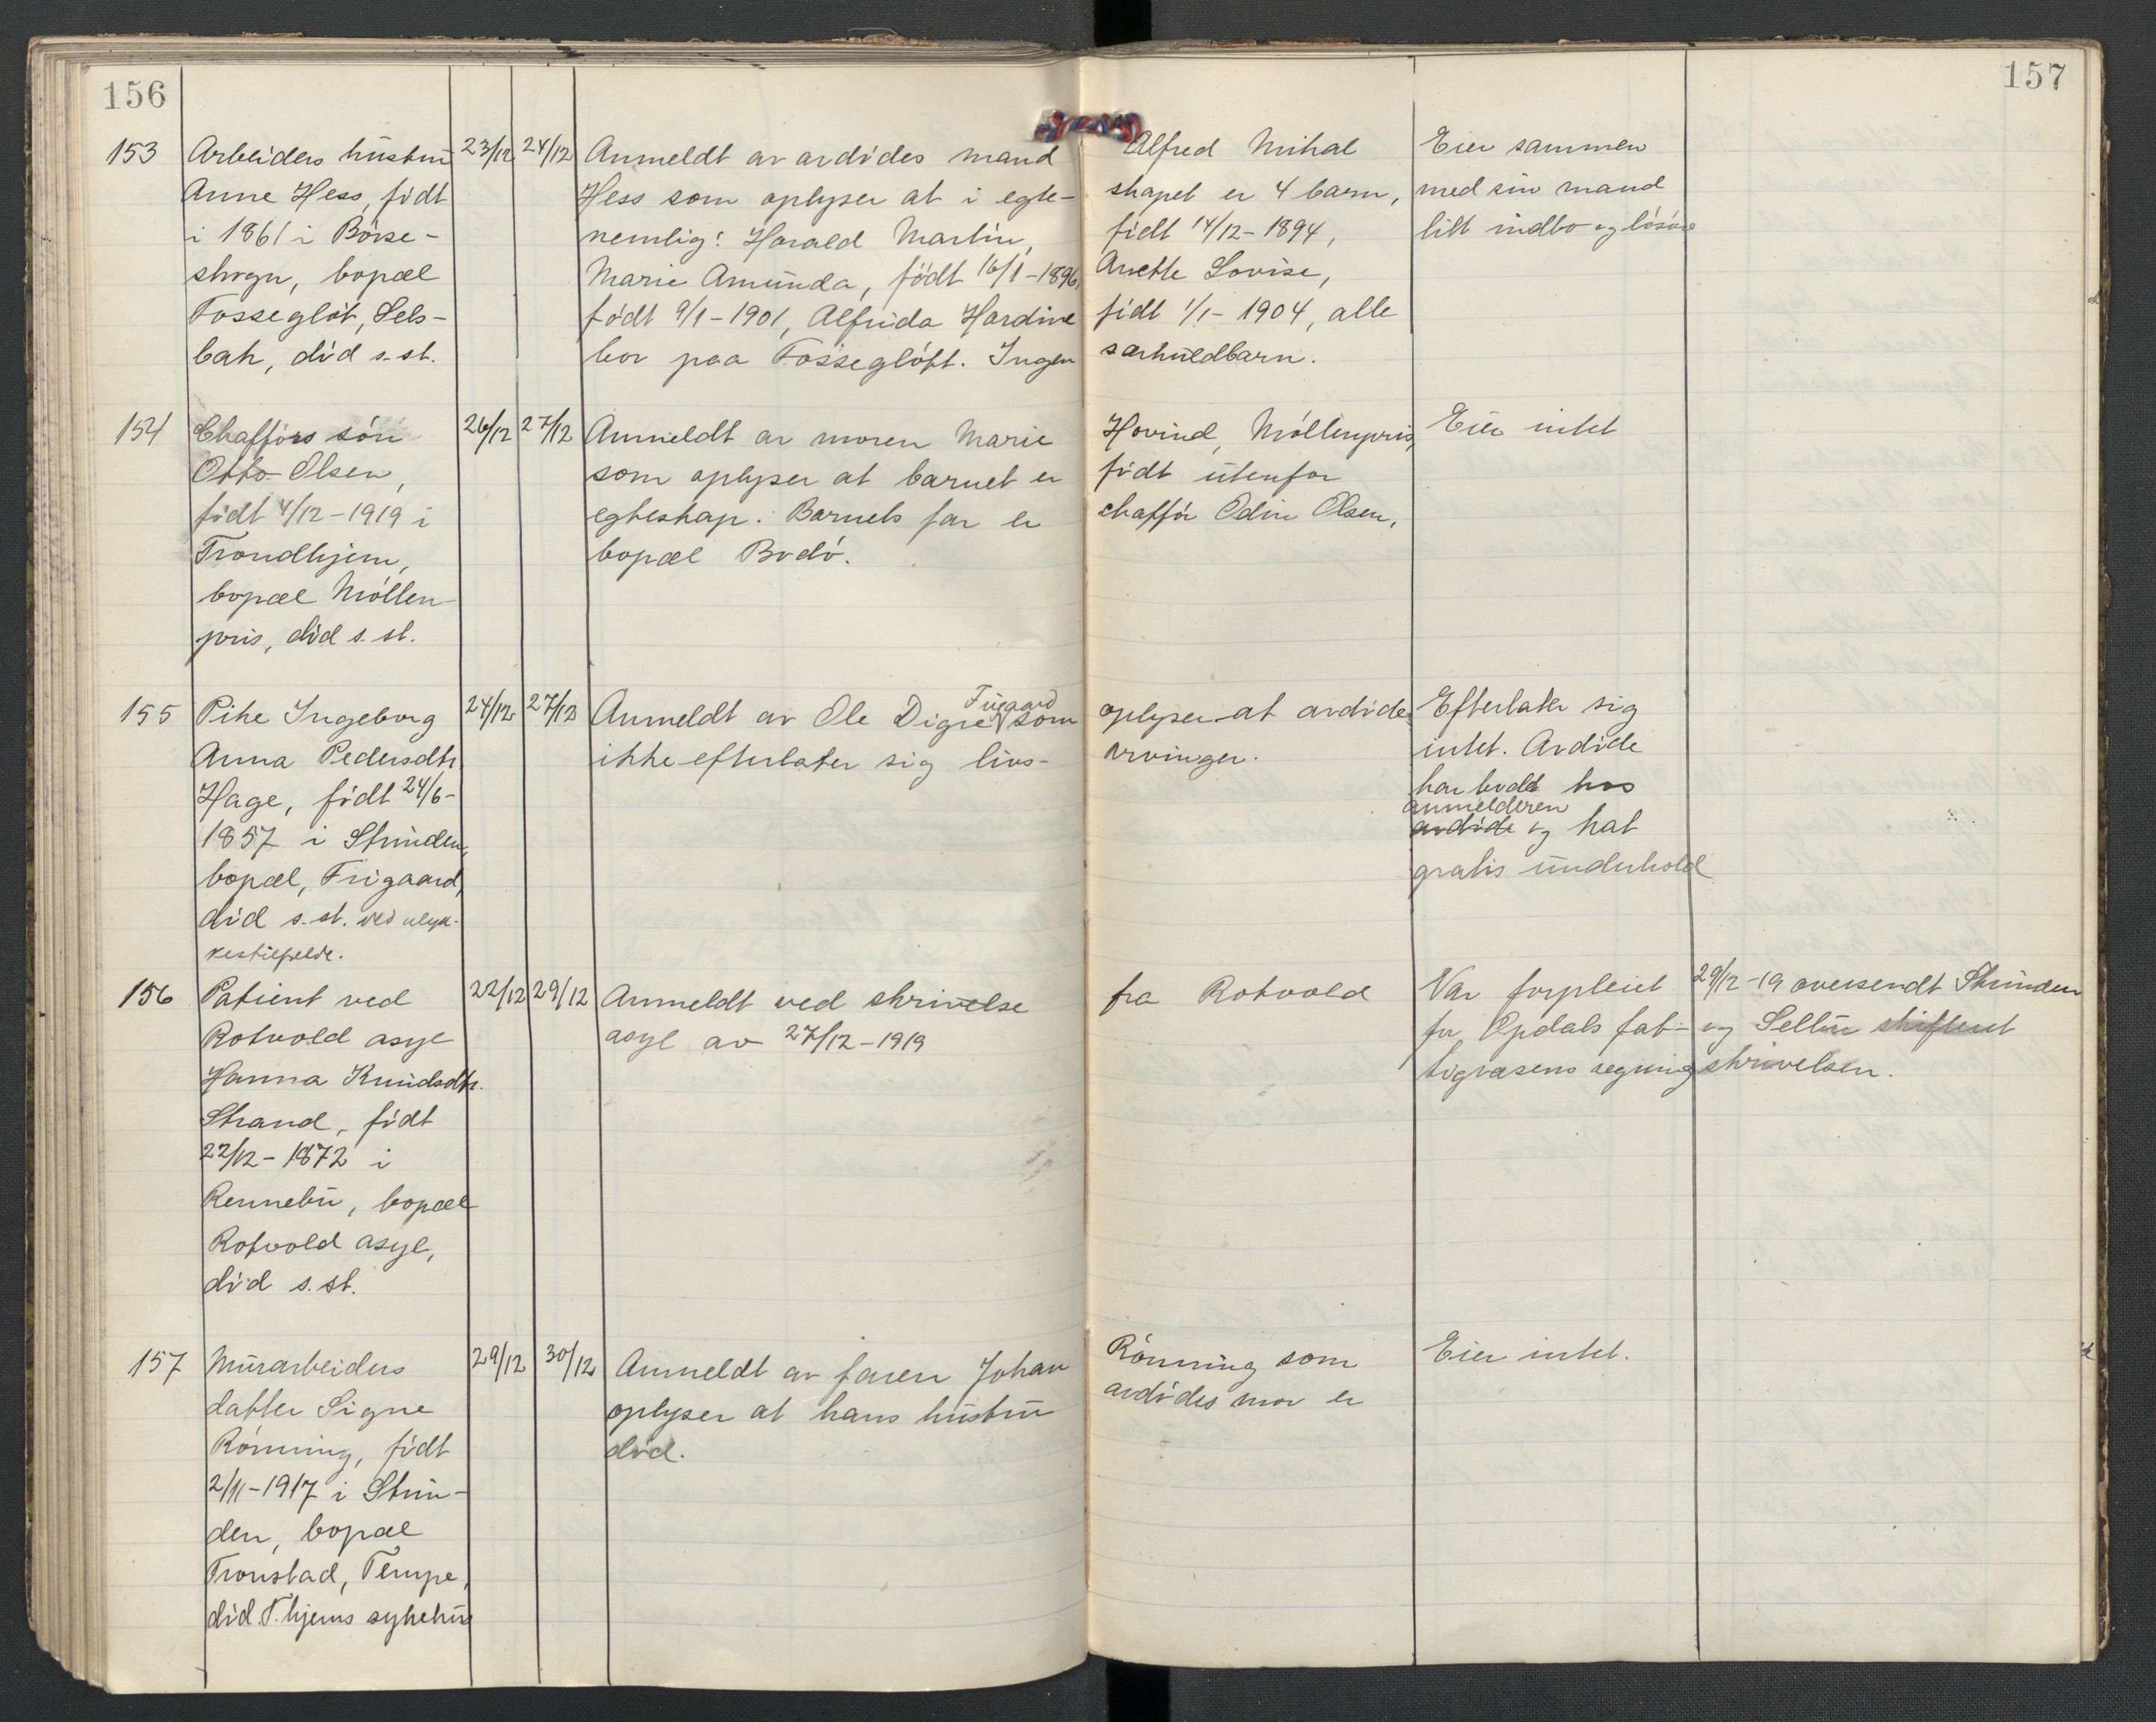 156
157
153 Arbeiders hustru 23/12 24/12 Anmeldt av avdødes mand Alfred Mikal Eier sammen
Anne Hess, født Hess som oplyser at i egte- skapet er 4 barn, med sin mand
i 1861 i Börse- nemlig: Harald Martin, født 14/12-1894, litt indbo og løsøre
skogn, bopæl Marie Amunda, født 16/1-1896, Anette Lovise,
Fosseglöt, Sels- født 9/1-1901, Alfrida Hardine født 1/1-1904, alle
bak, död s. st. bor paa Fosseglöft. Ingen særkuldbarn.
154 Chafförs sön 26/12 27/12 Anmeldt av moren Marie Hovind, Möllenpris, Eier intet
Otto Olsen, som oplyser at barnet er født utenfor
født 4/12-1919 i egteskap. Barnets far er chafför Odin Olsen,
Trondhjem, bopæl Bodö.
bopæl Möllen-
pris, död s. st.
155 Pike Ingeborg 24/12 27/12 Anmeldt av Ole Digre Frigaard som oplyser at avdøde Efterlater sig
Anna Pedersdtr ikke efterlater sig livs- arvinger. intet. Avdøde
Hage, født 24/6- har bodd hos
1857 i Strinden, anmelderen
avdøde og hat
bopæl, Frigaard, gratis underhold
död s. st. ved ulyk-
kestilfelde.
156 Patient ved 22/12 29/12 Anmeldt ved skrivelse fra Rotvold Var forpleiet 29/12-19 oversendt Strinden
Rotvold asyl asyl av 27/12-1919 for Opdals fat- og Selbu skifteret
Hanna Knudsdtr. tigvæsens regning skrivelsen.
Strand, født
22/12-1872 i
Rennebu, bopæl
Rotvold asyl,
död s. st.
157 Murarbeiders 29/12 30/12 Anmeldt av faren Johan Rönning som Eier intet.
datter Signe oplyser at hans hustru avdødes mor er
Rönning, født död.
2/11-1917 i Strin-
den, bopæl
Tronstad, Tempe,
död T.hjems sykehus